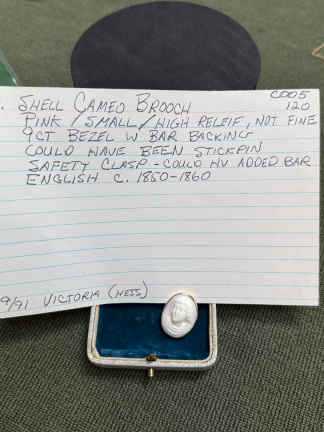 . SHELL CAMEO BROOCH C005
120
PINK / SMALL / HIGH RELEIF, NOT FINE
9CT BEZEL W BAR BACKING
COULD HAVE BEEN STICKPIN
SAFETY CLASP - COULD HV ADDED BAR
ENGLISH C. 1850-1860
9/91 VICTORIA (NESS)